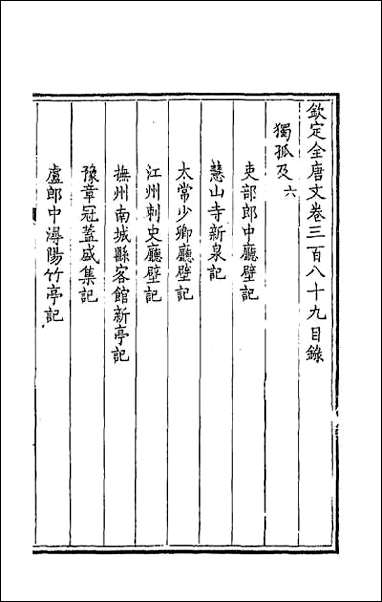 欽定全唐文卷三百八十九目錄
獨孤及六
吏部郎中廳壁記
慧山寺新泉記
太常少卿廳壁記
江州刺史廳壁記
撫州南城縣客館新亭記
豫章冠蓋盛集記
盧郎中潯陽竹亭記